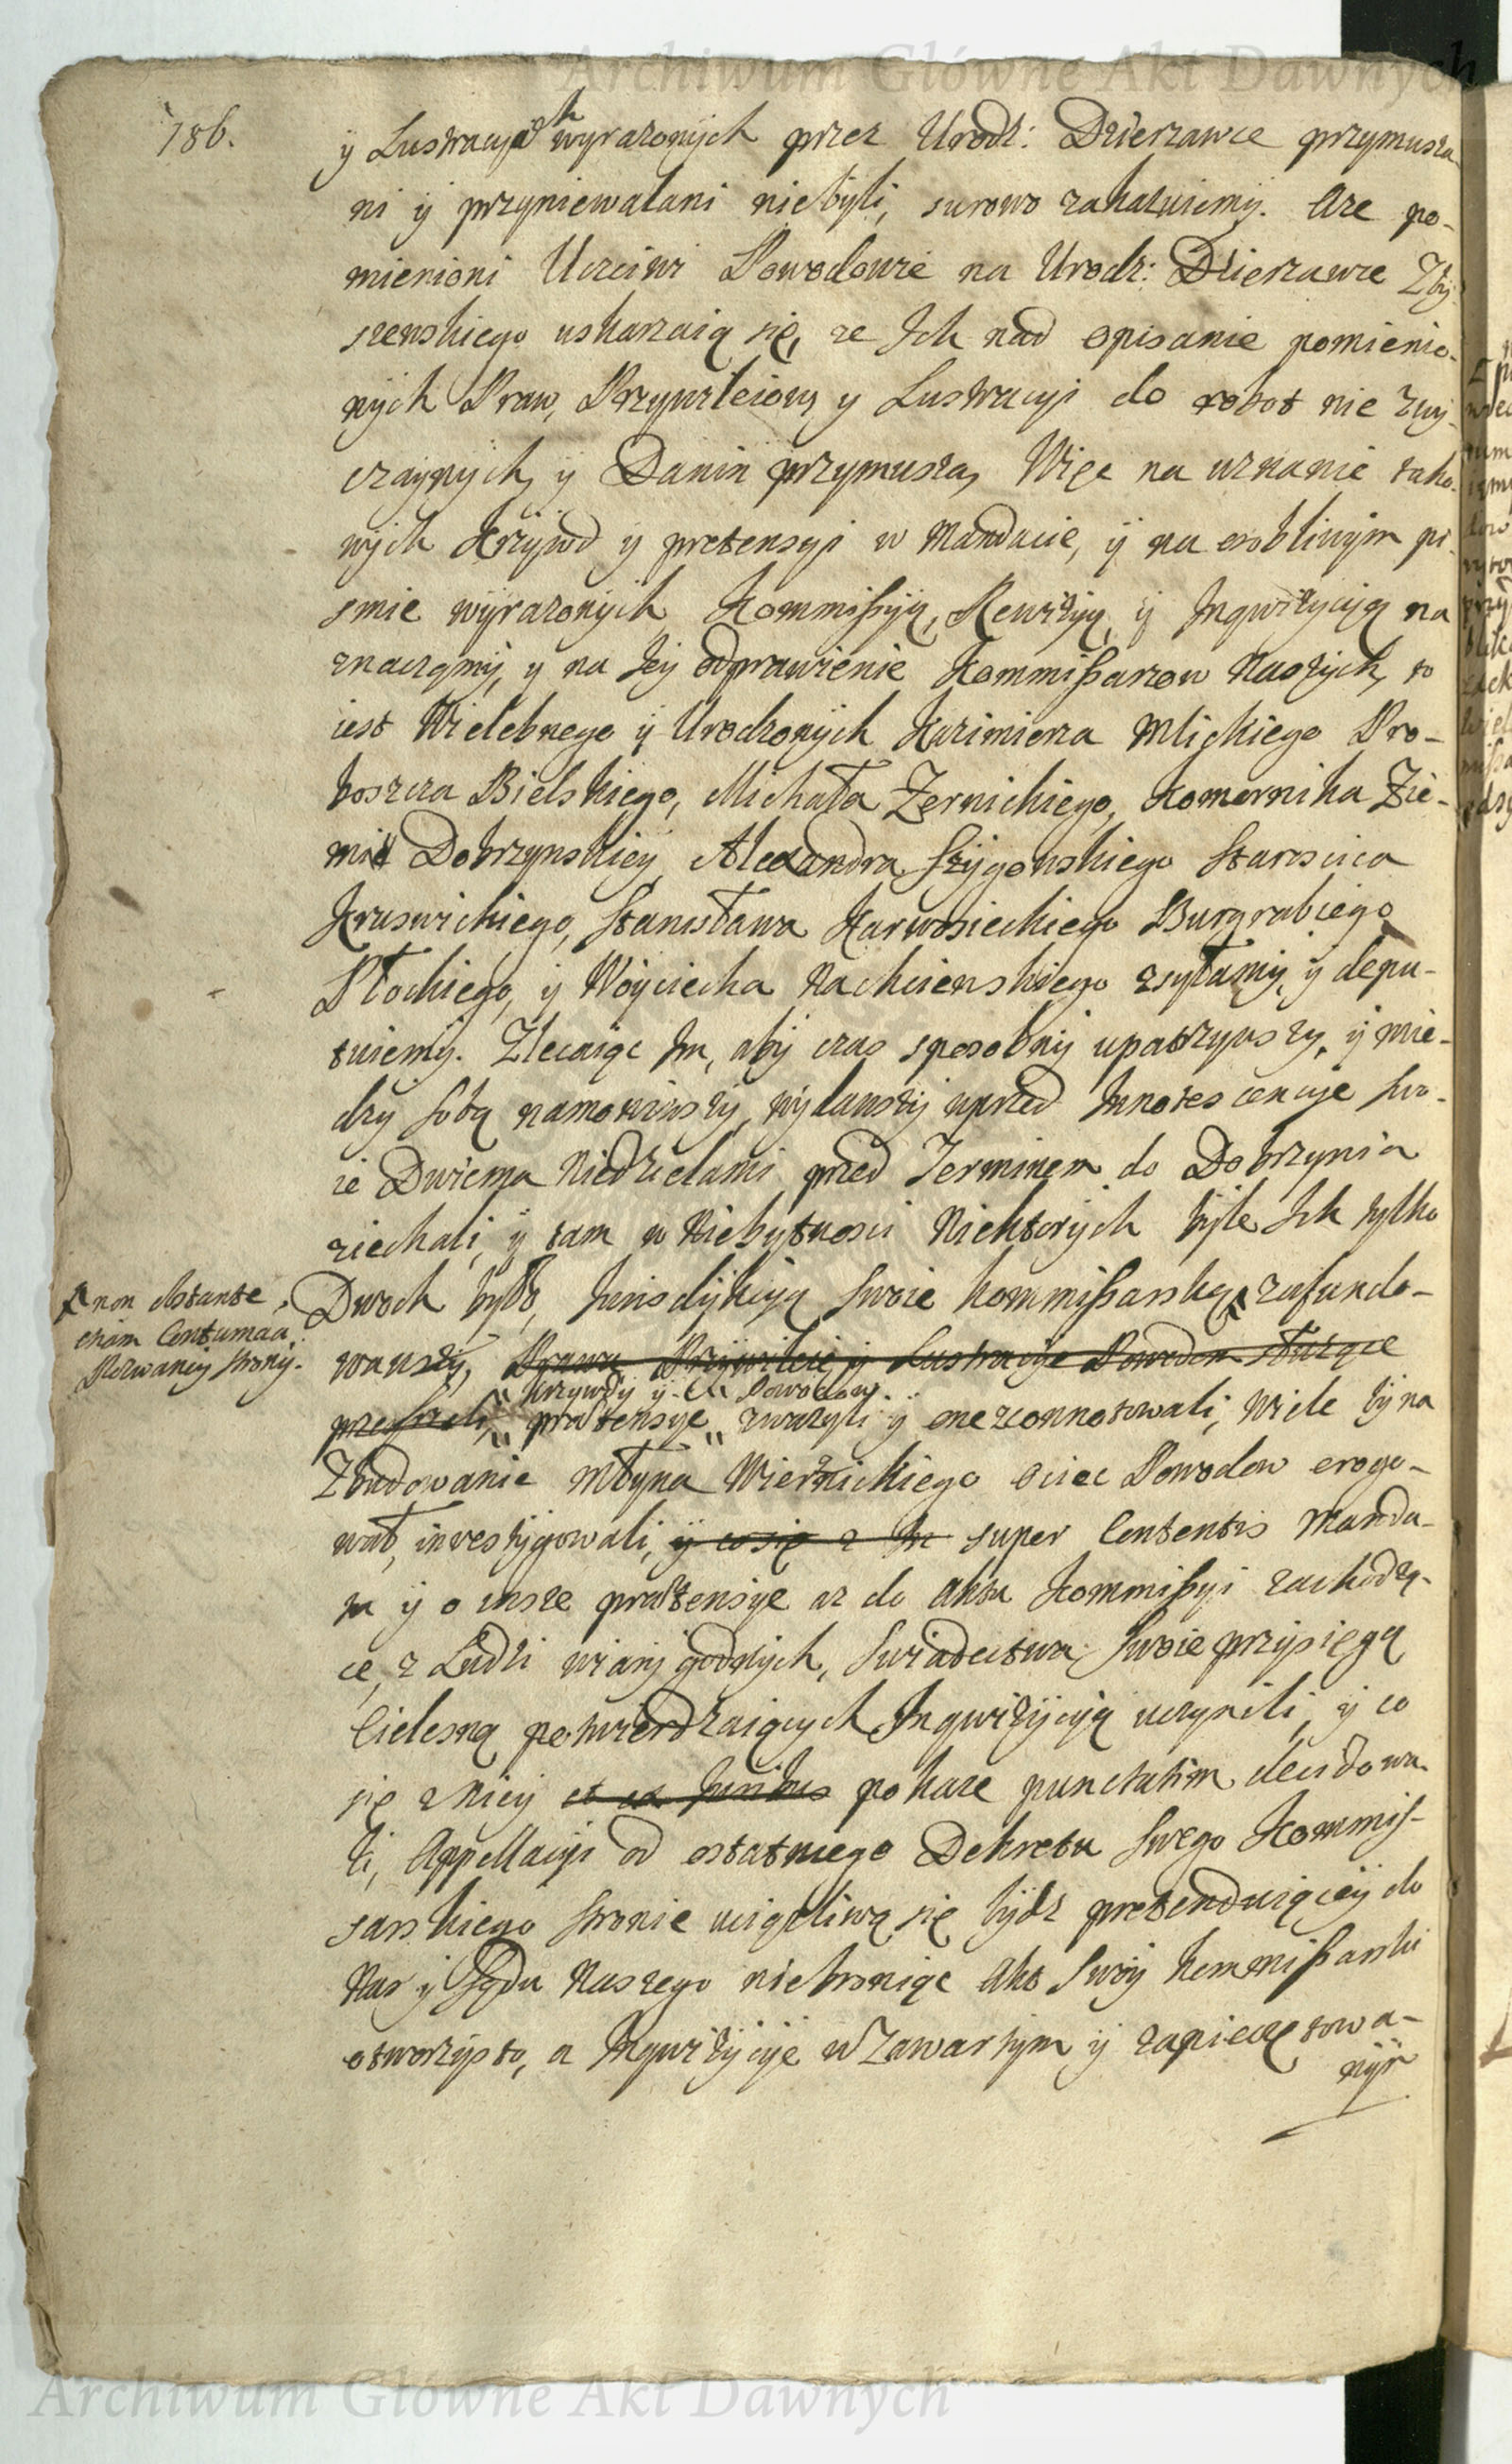 Archiwum Główne Akt Dawnych
786.
ÿ Lustracyach wyrazonÿch przez Urodz: Dzierzawce przymusza
ni ÿ przyniewalani niebÿli, surowo zakazuiemÿ. Aze po-
mienioni Uczciwi Powodowie na Urodz: Dzierzawce Zbÿ
szewskiego uskarzaią się, ze Ich nad opisanie pomienio-
nÿch Praw, Przywileiow y Lustracyi do robot nie zwÿ
czaÿnÿch ÿ Danin przymusza, Więc na uznanie tako-
wÿch Krzÿwd ÿ pretensyi w Mandacie, ÿ na osobliwÿm pi-
smie wÿrazonÿch Kommissÿią, Rewizyą, ÿ Inqwizycyią na
znaczÿmÿ, y na Jeÿ odprawienie Kommissarzow Naszÿch, to
iest Wielebnego ÿ Urodzonÿch Kazimierza Mlickiego Pro-
boszcza Bielskiego, Michała Zernickiego, Komornika Zie-
mi Dobrzynskieÿ, Alexandra Szÿgowskiego Staroscica
Kruswickiego, Stanisława Karwosieckiego Burgrabiego
Płockiego, ÿ Woÿciecha Nachcienskiego zsyłamÿ, ÿ depu-
tuiemÿ. Zlecaiąc Im, abÿ czas sposobnÿ upatrzywszy, ÿ mie-
dzÿ sobą namowiwszÿ, wÿdawszÿ wprzod Innotescencye swo-
ie Dwiema Niedzielami przed Terminem do Dobrzynia
ziechali, ÿ tam w Niebytnosci Niektorÿch bÿle Ich tylko
Dwoch bÿło, Jurisdÿkcÿą Swoie Kommissarską zafundo-
non obstante
etiam Contumacia
Pozwaneÿ stronÿ.
wawszÿ, Prawa Przÿwileie ÿ Lustracye Powodom słuzące
krzywdÿ ÿ Powodow
przeÿrzeli, prætensÿe zwazyli ÿ one zconnotowali, wiele bÿ na
Zbudowanie Młyna Wierznickiego Ociec Powodow erogo-
wał, investÿgowali, ÿ co się z super Contentis Manda-
tu ÿ o insze prætensÿe az do Aktu Kommissyi zachodzą-
ce, z Ludzi wiarÿ godnÿch, Swiadectwa Swoie przysięgą
Cielesną potwierdzaiącÿch Inqwizÿcyią uczynili, ÿ co
się z Nieÿ et ex Juribus pokaze punctatim decidowa-
li, Appellacyi od ostatniego Dekretu Swego Kommis-
sarskiego stronie uciązliwą się bÿdz pretenduiąceÿ do
Nas ÿ Sądu Naszego niebroniąc Akt Swóÿ Kommissarski
otworzÿsto, a Inqwizÿcÿe w Zawartym ÿ zapieczętowa-
nÿm
Archiwum Główne Akt Dawnych